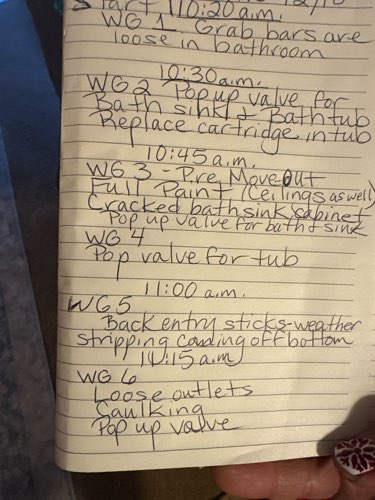 Start 10:20 a.m.
WG 1 Grab bars are
loose in bathroom
10:30 a.m.
WG 2 Pop up valve for
Bath sink & Bathtub
Replace cartridge in tub
10:45 a.m.
WG 3 - Pre Move Out
Full Paint (Ceilings as well)
Cracked bath sink cabinet
Pop up valve for bath & sink
WG 4
Pop valve for tub
11:00 a.m.
WG 5
Back entry sticks-weather
stripping coming off bottom
11:15 a.m.
WG 6
Loose outlets
Caulking
Pop up valve